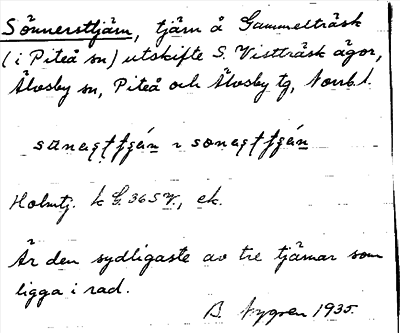 Sönnersttjärn, tjärn å Gammelträsk
(i Piteå sn) utskifte S. Vistträsk ägor,
Älvsby sn, Piteå och Älvsby tg, Norrb. l.
Holmtj. k G. 365 V., ek.
Är den sydligaste av tre tjärnar som
ligga i rad.
B. Nygren 1935.